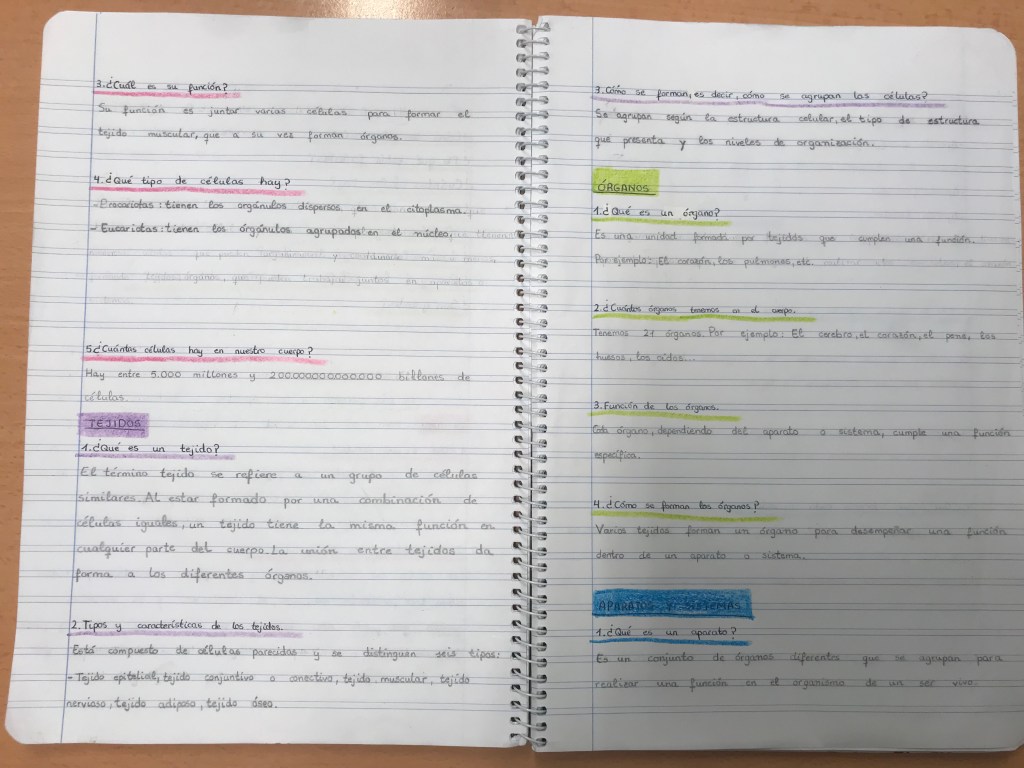 3.¿Cuál es su función?
Su función es juntar varias células para formar el
tejido muscular, que a su ves forman órganos.
4.¿Qué tipo de células hay?
-Procariotas: tienen los orgánulos dispersos en el citoplasma.
-Eucariotas: tienen los órgánulos agrupados en el núcleo.
5¿Cuántas células hay en nuestro cuerpo?
Hay entre 5.000 millones y 200.000000000.000 billones de
células.
TEJIDOS
1.¿Qué es un tejido?
El término tejido se refiere a un grupo de células
similares. Al estar formado por una combinación de
células iguales, un tejido tiene la misma función en
cualquier parte del cuerpo. La unión entre tejidos da
forma a los diferentes órganos.
2. Tipos y características de los tejidos.
Está compuesto de células parecidas y se distinguen seis tipos:
-Tejido epitelial, tejido conjuntivo o conectivo, tejido muscular, tejido
nervioso, tejido adiposo, tejido óseo.
3.Cómo se forman, es decir, cómo se agrupan las células?
Se agrupan según la estructura celular, el tipo de estructura
que presenta y los niveles de organización.
ÓRGANOS
1.¿Qué es un órgano?
Es una unidad formada por tejidos que cumplen una función.
Por ejemplo: El corazón, los pulmones, etc.
2.¿Cuántos órganos tenemos en el cuerpo.
Tenemos 21 órganos. Por ejemplo: El cerebro, el corazón, el pene, los
huesos, los oídos...
3.Función de los órganos.
Cada órgano, dependiendo del aparato o sistema, cumple una función
específica.
4.¿Cómo se forman los órganos?
Varios tejidos forman un órgano para desempeñar una función
dentro de un aparato o sistema.
APARATOS Y SISTEMAS
1.¿Qué es un aparato?
Es un conjunto de órganos diferentes que se agrupan para
realizar una función en el organismo de un ser vivo.